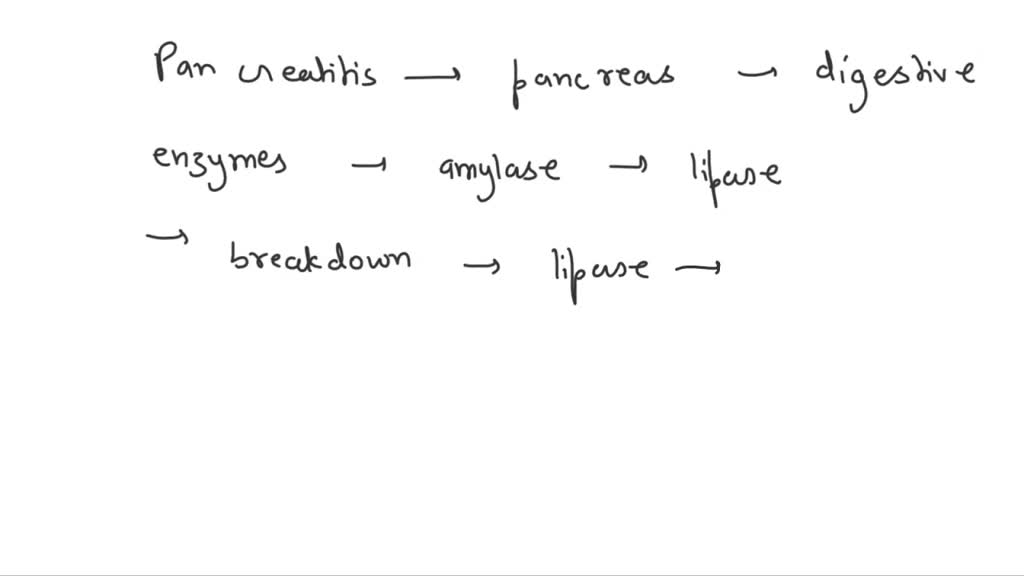 Pancreatitis → pancreas → digestive
enzymes → amylase → lipase
→ breakdown → lipase →